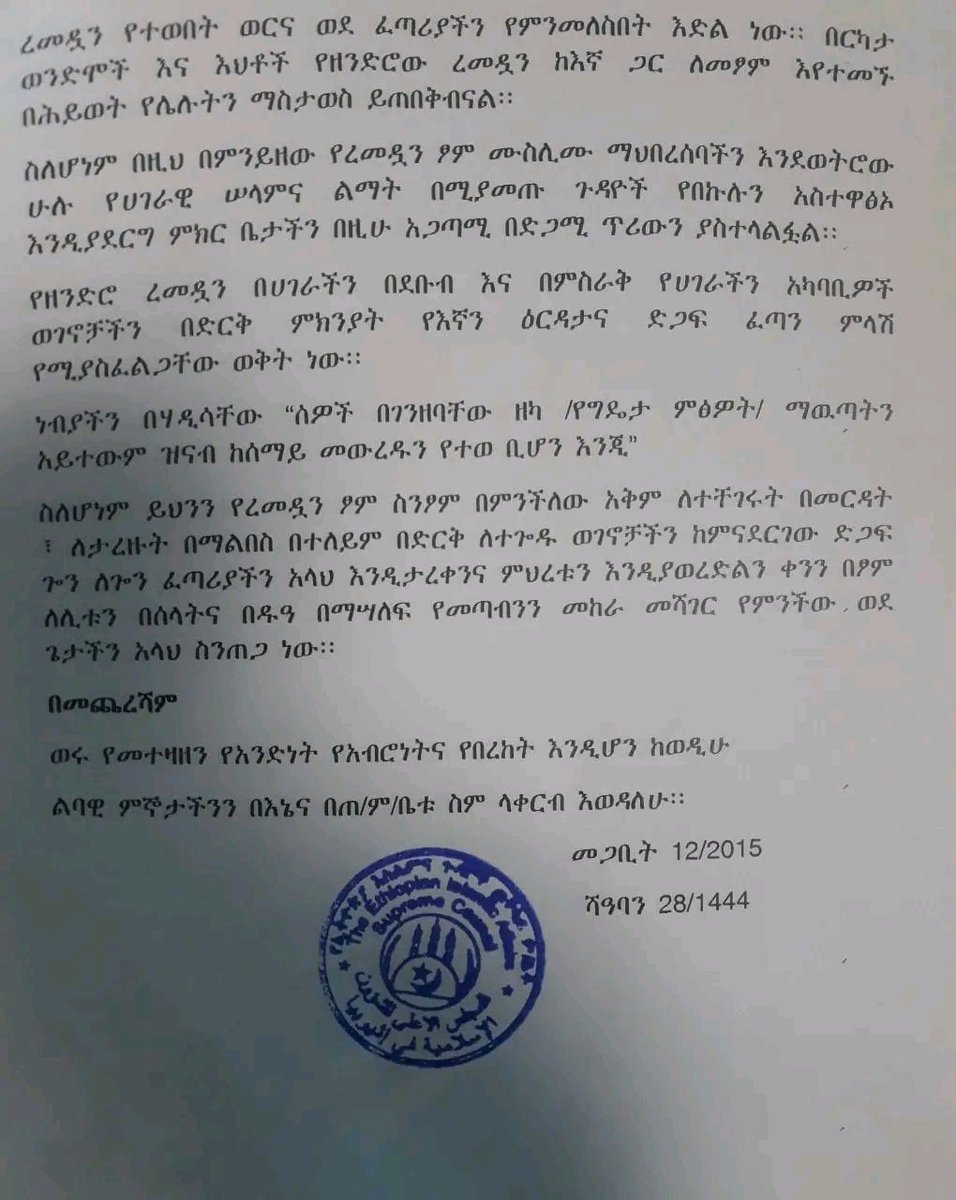 ረመዷን የተወበት ወርና ወደ ፈጣሪያችን የምንመለስበት እድል ነው፡፡ በርካታ
ወንድሞች እና እህቶች የዘንድሮው ረመዷን ከእኛ ጋር ለመፆም እየተመኙ
በሕይወት የሌሉትን ማስታወስ ይጠበቅብናል፡፡
ስለሆነም በዚህ በምንይዘው የረመዷን ፆም ሙስሊሙ ማህበረሰባችን እንደወትሮው
ሁሉ የሀገራዊ ሠላምና ልማት በሚያመጡ ጉዳዮች የበኩሉን አስተዋፅኦ
እንዲያደርግ ምክር ቤታችን በዚሁ አጋጣሚ በድጋሚ ጥሪውን ያስተላልፏል፡፡
የዘንድሮ ረመዷን በሀገራችን በደቡብ እና በምስራቅ የሀገራችን አካባቢዎች
ወገኖቻችን በድርቅ ምክንያት የእኛን ዕርዳታና ድጋፍ ፈጣን ምላሽ
የሚያስፈልጋቸው ወቅት ነው፡፡
ነብያችን በሃዲሳቸው “ሰዎች በገንዘባቸው ዘካ /የግዴታ ምፅዎት/ ማዉጣትን
አይተውም ዝናብ ከሰማይ መውረዱን የተወ ቢሆን እንጂ”
ስለሆነም ይህንን የረመዷን ፆም ስንፆም በምንችለው አቅም ለተቸገሩት በመርዳት
፣ ለታረዙት በማልበስ በተለይም በድርቅ ለተጐዱ ወገኖቻችን ከምናደርገው ድጋፍ
ጐን ለጐን ፈጣሪያችን አላህ እንዲታረቀንና ምህረቱን እንዲያወረድልን ቀንን በፆም
ለሊቱን በሰላትና በዱዓ በማሣለፍ የመጣብንን መከራ መሻገር የምንችው ወደ
ጌታችን አላህ ስንጠጋ ነው፡፡
በመጨረሻም
ወሩ የመተዛዘን የአንድነት የአብሮነትና የበረከት እንዲሆን ከወዲሁ
ልባዊ ምኞታችንን በእኔና በጠ/ም/ቤቱ ስም ላቀርብ እወዳለሁ፡፡
መጋቢት 12/2015
ሻዓባን 28/1444
The Ethiopian Islamic Affairs
Supreme Council
المجلس الاعلى للشئون
الإسلامية في أثيوبيا